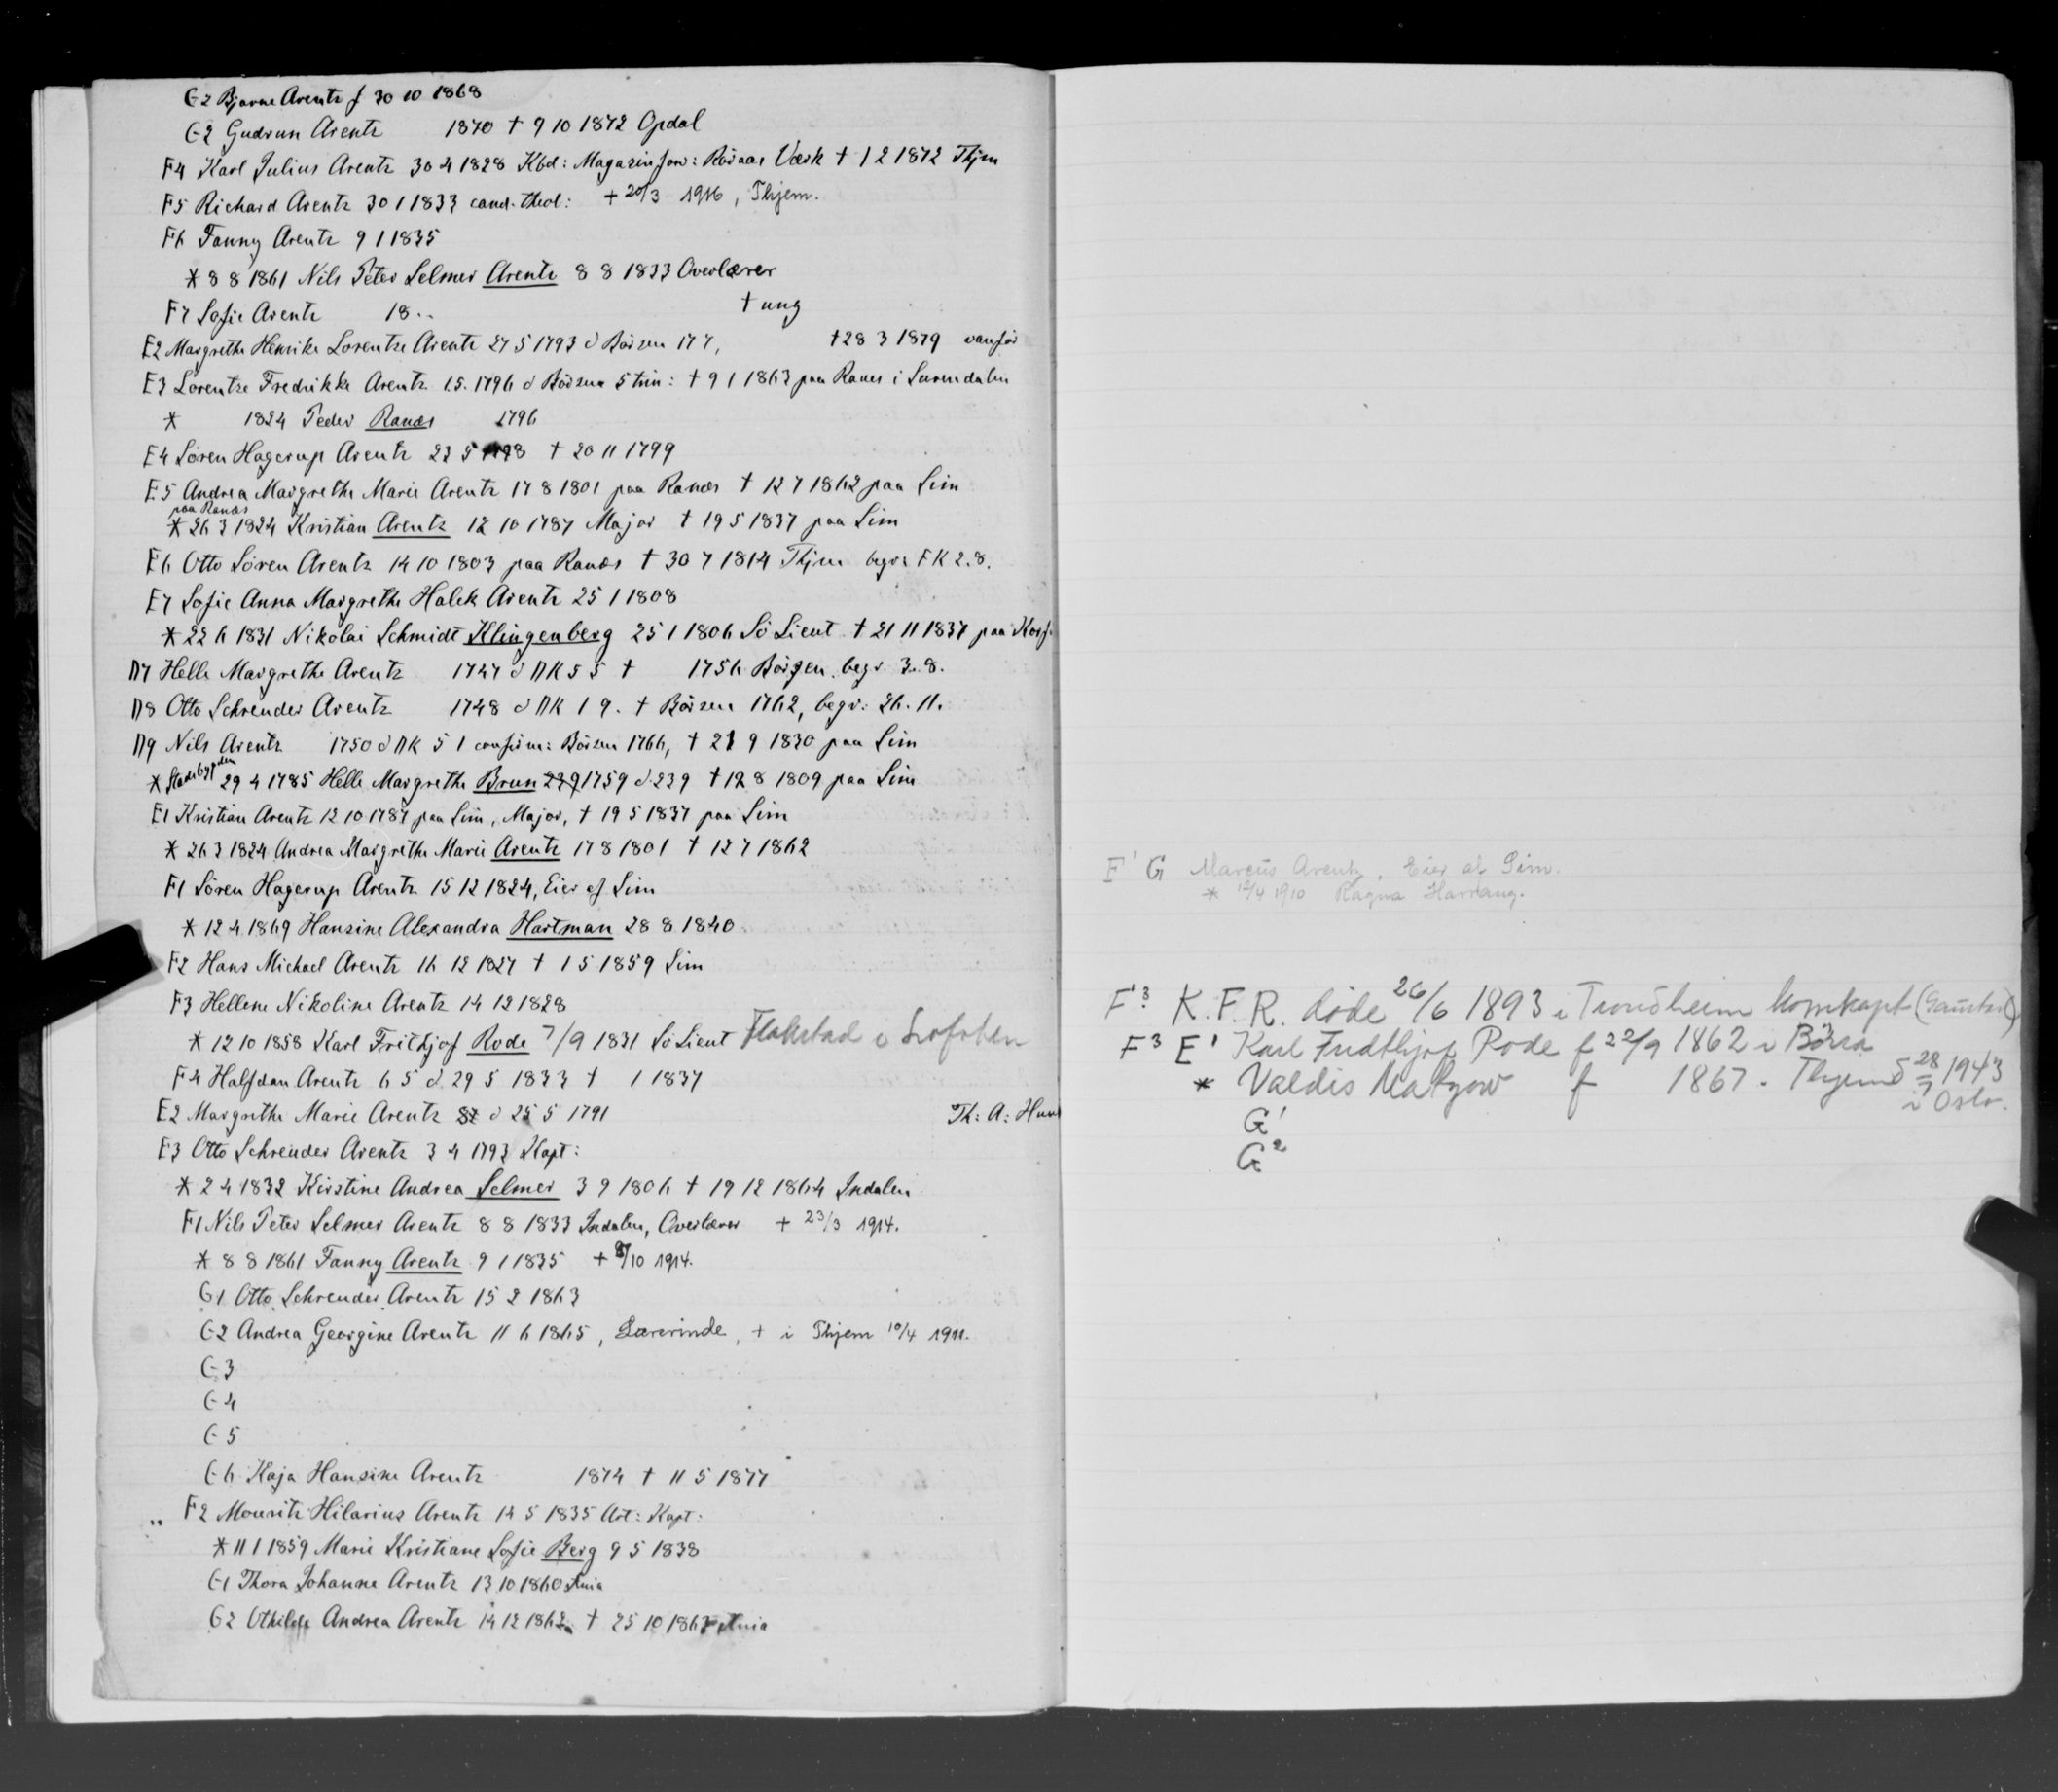 G2 Bjarne Arentz f 30 10 1868
G2 Gudrun Arentz 1870 † 9 10 1872 Opdal
F4 Karl Julius Arentz 30 4 1828 Kbd: Magazinforv: Röraas Værk † 1 2 1872 Thjm
F5 Richard Arentz 30 1 1833 cand. theol: + 20/3 1916, Thjem.
F6 Fanny Arentz 9 1 1835
* 8 8 1861 Nils Peter Selmer Arentz 8 8 1833 Overlærer
F7 Sofie Arentz 18.. † ung
E2 Margrethe Henrike Lorentze Arentz 27 5 1793 d Börsen 17 7, † 28 3 1879 vanför
E3 Lorentze Fredrikke Arentz 15. 1796 d Börsen 5 trin: † 9 1 1863 paa Ranes i Surendalen
* 1824 Peder Ranæs 1796
E4 Sören Hagerup Arentz 23 5 1798 † 20 11 1799
E5 Andrea Margrethe Marie Arentz 17 8 1801 paa Ranæs † 12 7 1862 paa Lim
paa Ranæs
* 26 3 1824 Kristian Arentz 12 10 1787 Major † 19 5 1837 paa Lim
E6 Otto Sören Arentz 14 10 1803 paa Ranæs † 30 7 1814 Thjm begr: FK 2.8.
E7 Sofie Anna Margrethe Halck Arentz 25 1 1808
* 22 6 1831 Nikolai Schmidt Klingenberg 25 1 1806 Sö Lieut † 21 11 1837 paa Korf
D7 Helle Margrethe Arentz 1747 d DK 5 5 † 1756 Börsen. begr 3.8.
D8 Otto Schreuder Arentz 1748 d DK 1 9. † Börsen 1762, begr: 26.11.
D9 Nils Arentz 1750 d DK 5 1 confirm: Börsen 1766, † 21 9 1830 paa Lim
* Stadsbygden 29 4 1785 Helle Margrethe Brun 239 1759 d 23 9 † 12 8 1809 paa Lim
E1 Kristian Arentz 12 10 1787 paa Lim, Major, † 19 5 1837 paa Lim
* 26 3 1824 Andrea Margrethe Marie Arentz 17 8 1801 † 12 7 1862
F1 Sören Hagerup Arentz 15 12 1824, Eier af Lim
* 12 4 1869 Hansine Alexandra Hartman 28 8 1840
F2 Hans Michael Arentz 16 12 1827 † 1 5 1859 Lim
F3 Hellene Nikoline Arentz 14 12 1828
* 12 10 1858 Karl Frithjof Rode 7/9 1831 Sö Lieut Flakstad i Lofoten
F4 Halfdan Arentz 6 5 d. 29 5 1833 † 1 1837
E2 Margrethe Marie Arentz d 25 5 1791 Th: A:
E3 Otto Schreuder Arentz 3 4 1793 Kapt:
* 2 4 1832 Kirstine Andrea Selmer 3 9 1806 † 19 12 1864 Indalen
F1 Nils Peter Selmer Arentz 8 8 1833 Indalen, Overlærer + 23/3 1914.
* 8 8 1861 Fanny Arentz 9 1 1835 + /10 1914.
G1 Otto Schreuder Arentz 15 2 1863
G2 Andrea Georgine Arentz 11 6 1865, Lærerinde, + i Thjem 10/4 1911.
G3
G4
G5
G6 Kaja Hansine Arentz 1874 † 11 5 1877
F2 Mouritz Hilarius Arentz 14 5 1835 Art: Kapt:
* 11 1 1859 Marie Kristiane Sofie Berg 9 5 1838
G1 Thora Johanne Arentz 13 10 1860
G2 Othilde Andrea Arentz 14 12 1862 † 25 10 1867
F' G Marcus Arentz, Eier af Lim.
* 12/4 1910 Ragna Harrang.
F'3 K. F. R. döde 26/6 1893 i Trondheim
F3 E' Karl Fridthjof Rode f 22/9 1862 i Börsa
* Valdis Matzow f 1867. Thjem d 28/7 1943
i Oslo.
G'
G2